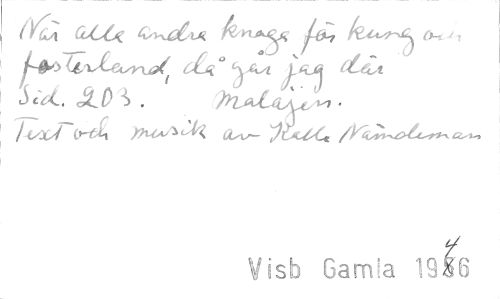 När alla andra knoga för kung och
fosterland, då går jag där
Sid. 203. Malajen.
Text och musik av Kalle Nämdeman
Visb Gamla 1946